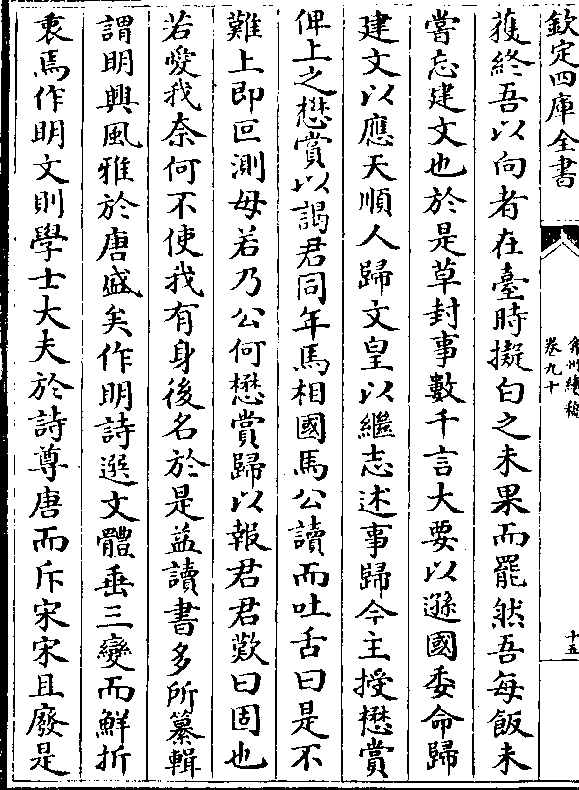 欽定四庫全書
弇州續稿
卷九十
十五
獲終吾以向者在臺時擬白之未果而罷然吾每飯未
嘗忘建文也於是草封事數千言大要以遜國委命歸
建文以應天順人歸文皇以繼志述事歸今主授懋賞
俾上之懋賞以謁君同年馬相國馬公讀而吐舌曰是不
難上即叵測毋若乃公何懋賞歸以報君君歎曰固也
若愛我奈何不使我有身後名於是益讀書多所纂輯
謂明興風雅於唐盛矣作明詩選文體垂三變而鮮折
衷焉作明文則學士大夫於詩尊唐而斥宋宋且廢是